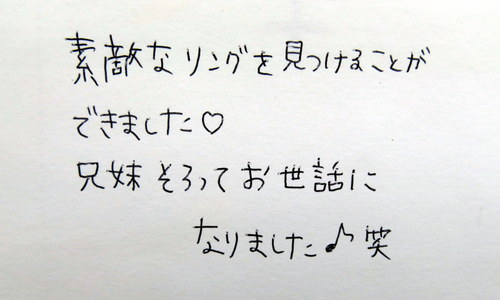 素敵なリングを見つけることが
できました♡
兄妹そろってお世話に
なりました♪笑